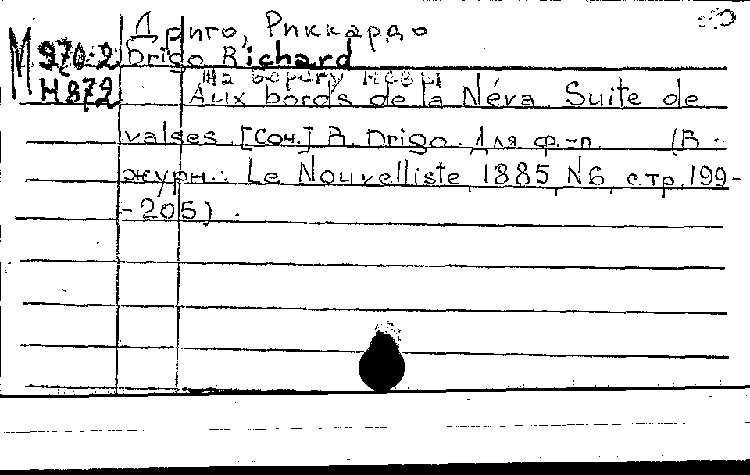 Дриго, Риккардо
М 970-2 Drigo Richard
На берегу Невы
Н 872 Aux bords de la Néva. Suite de
valses. [Соч.] R. Drigo. Для ф.-п. (В
журн.: Le Nouvelliste, 1885, N6, стр. 199-
-205).